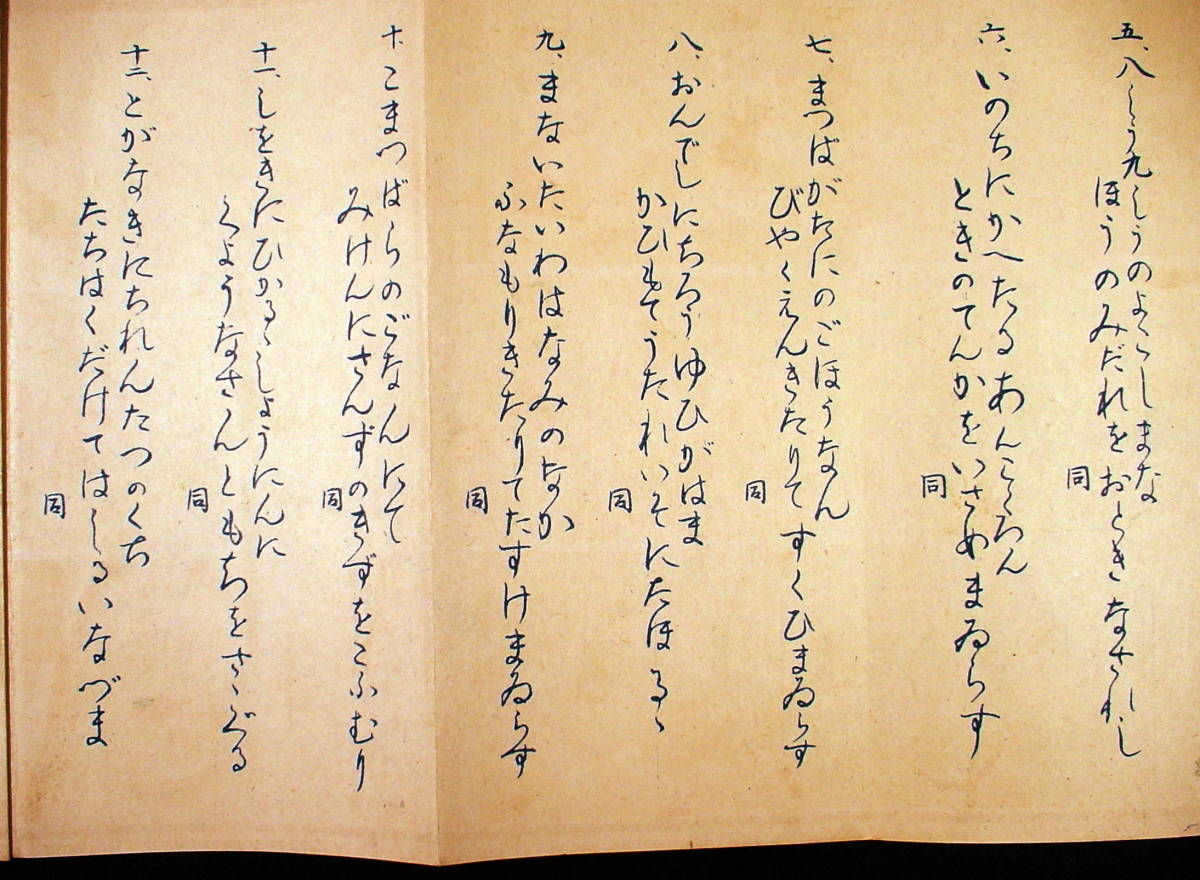 五、八しう九しうのよこしまな
ほうのみだれをおときなされし
同
六、いのちにかへたるあんこくろん
ときのてんかをいさめまゐらす
同
七、まつばがたにのごほうなん
びやくえんきたりてすくひまゐらす
同
八、おんでしにちろうゆひがはま
かひもてうたれいそにたほるゝ
同
九、まないたいわはなみのなか
ふなもりきたりてたすけまゐらす
同
十、こまつばらのごなんにて
みけんにさんずのきずをこふむり
同
十一、しをきにひかるゝしようにんに
くようなさんともちをさゝぐる
同
十二、とがなきにちれんたつのくち
たちはくだけてはしるいなづま
同